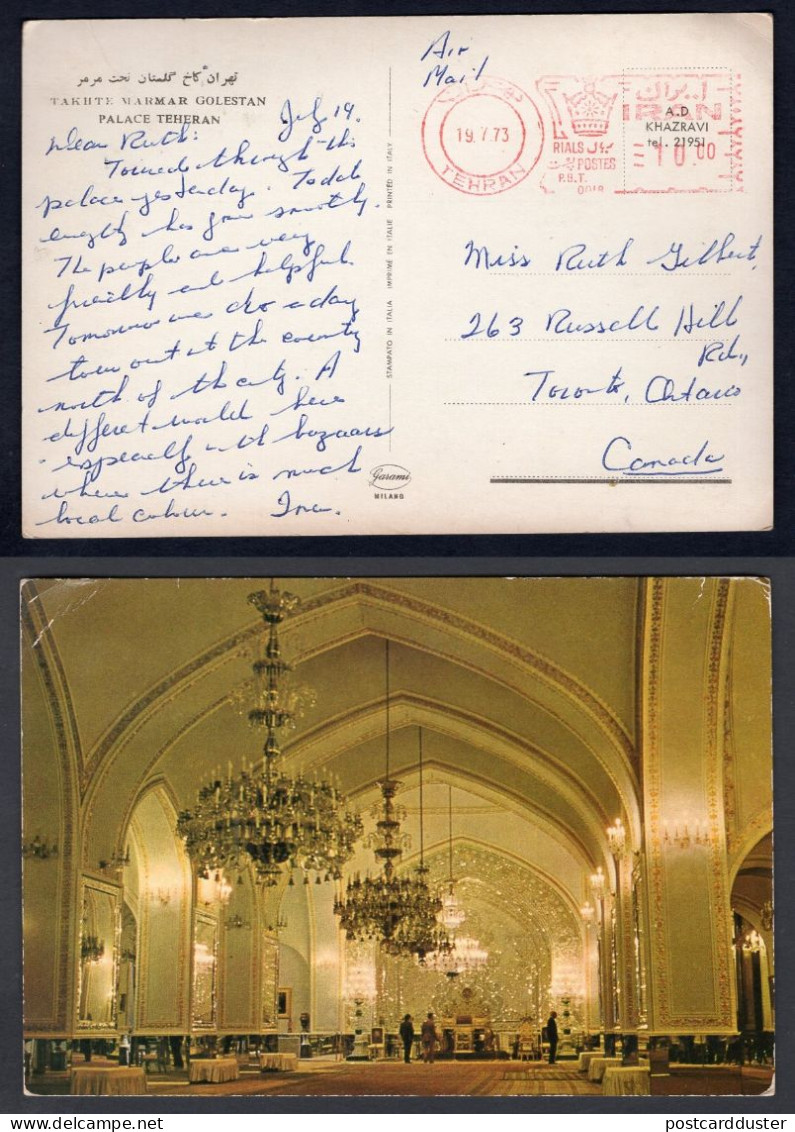 تهران کاخ گلستان تخت مرمر
TAKHTE MARMAR GOLESTAN
PALACE TEHERAN
July 19
Dear Ruth:
Toured through this
palace yesterday. To date
everything has gone smoothly.
The people are very
friendly and helpful.
Tomorrow we do a day
tour out at the country
north of the city. A
different world here
especially with bazaars
where there is much
local colour.
STAMPATO IN ITALIA IMPRIMÉ EN ITALIE PRINTED IN ITALY
Garami
MILANO
Air
Mail
19.7.73
TEHRAN
ایران
IRAN
RIALS ریال
POSTES
P.B.T.
0018
10.00
A.D
KHAZRAVI
tel. 21951
Miss Ruth Gilbert,
263 Russell Hill
Rd.,
Toronto, Ontario
Canada
postcardduster